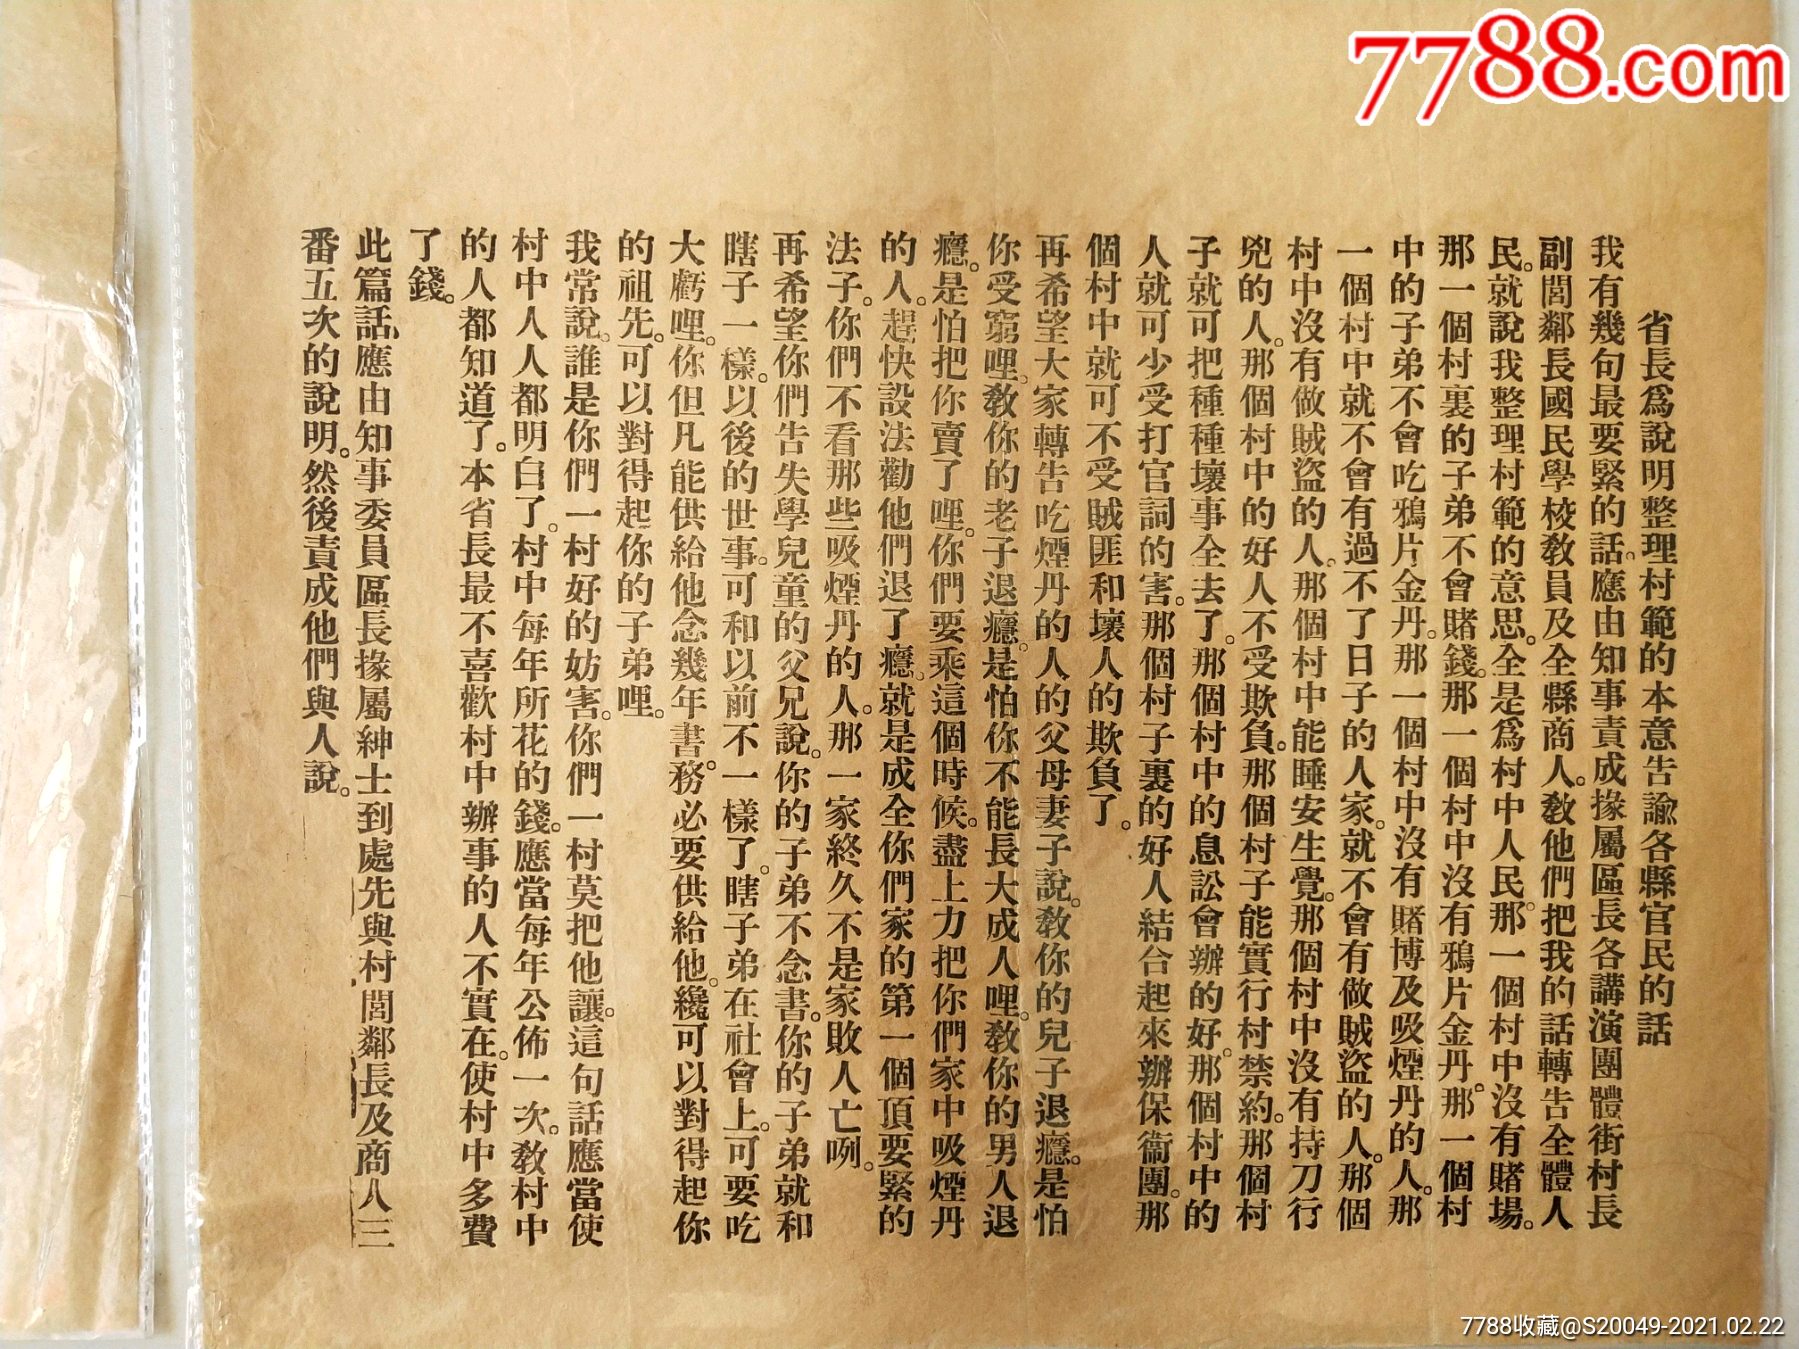 7788.com
省長爲說明整理村範的本意告諭各縣官民的話
我有幾句最要緊的話。應由知事責成掾屬區長各講演團體街村長
副閭鄰長國民學校教員及全縣商人。教他們把我的話轉告全體人
民。就說我整理村範的意思。全是爲村中人民。那一個村中沒有賭場。
那一個村裏的子弟不會賭錢。那一個村中沒有鴉片金丹。那一個村
中的子弟不會吃鴉片金丹。那一個村中沒有賭博及吸煙丹的人。那
一個村中就不會有過不了日子的人家。就不會有做賊盜的人。那個
村中沒有做賊盜的人。那個村中能睡安生覺。那個村中沒有持刀行
兇的人。那個村中的好人不受欺負。那個村子能實行村禁約。那個村
子就可把種種壞事全去了。那個村中的息訟會辦的好。那個村中的
人就可少受打官詞的害。那個村子裏的好人結合起來辦保衞團。那
個村中就可不受賊匪和壞人的欺負了。
再希望大家轉告吃煙丹的人的父母妻子說。教你的兒子退癮。是怕
你受窮哩。教你的老子退癮。是怕你不能長大成人哩。教你的男人退
癮。是怕把你賣了哩。你們要乘這個時候。盡上力把你們家中吸煙丹
的人。趕快設法勸他們退了癮。就是成全你們家的第一個頂要緊的
法子。你們不看那些吸煙丹的人。那一家終久不是家敗人亡咧。
再希望你們告失學兒童的父兄說。你的子弟不念書。你的子弟就和
瞎子一樣。以後的世事。可和以前不一樣了。瞎子弟在社會上。可要吃
大虧哩。你但凡能供給他念幾年書。務必要供給他。纔可以對得起你
的祖先。可以對得起你的子弟哩。
我常說。誰是你們一村好的妨害。你們一村莫把他讓。這句話應當使
村中人人都明白了。村中每年所花的錢。應當每年公佈一次。教村中
的人都知道了。本省長最不喜歡村中辦事的人不實在。使村中多費
了錢。
此篇話。應由知事委員區長掾屬紳士到處先與村閭鄰長及商人三
番五次的說明。然後責成他們與人說。
7788收藏@S20049-2021.02.22